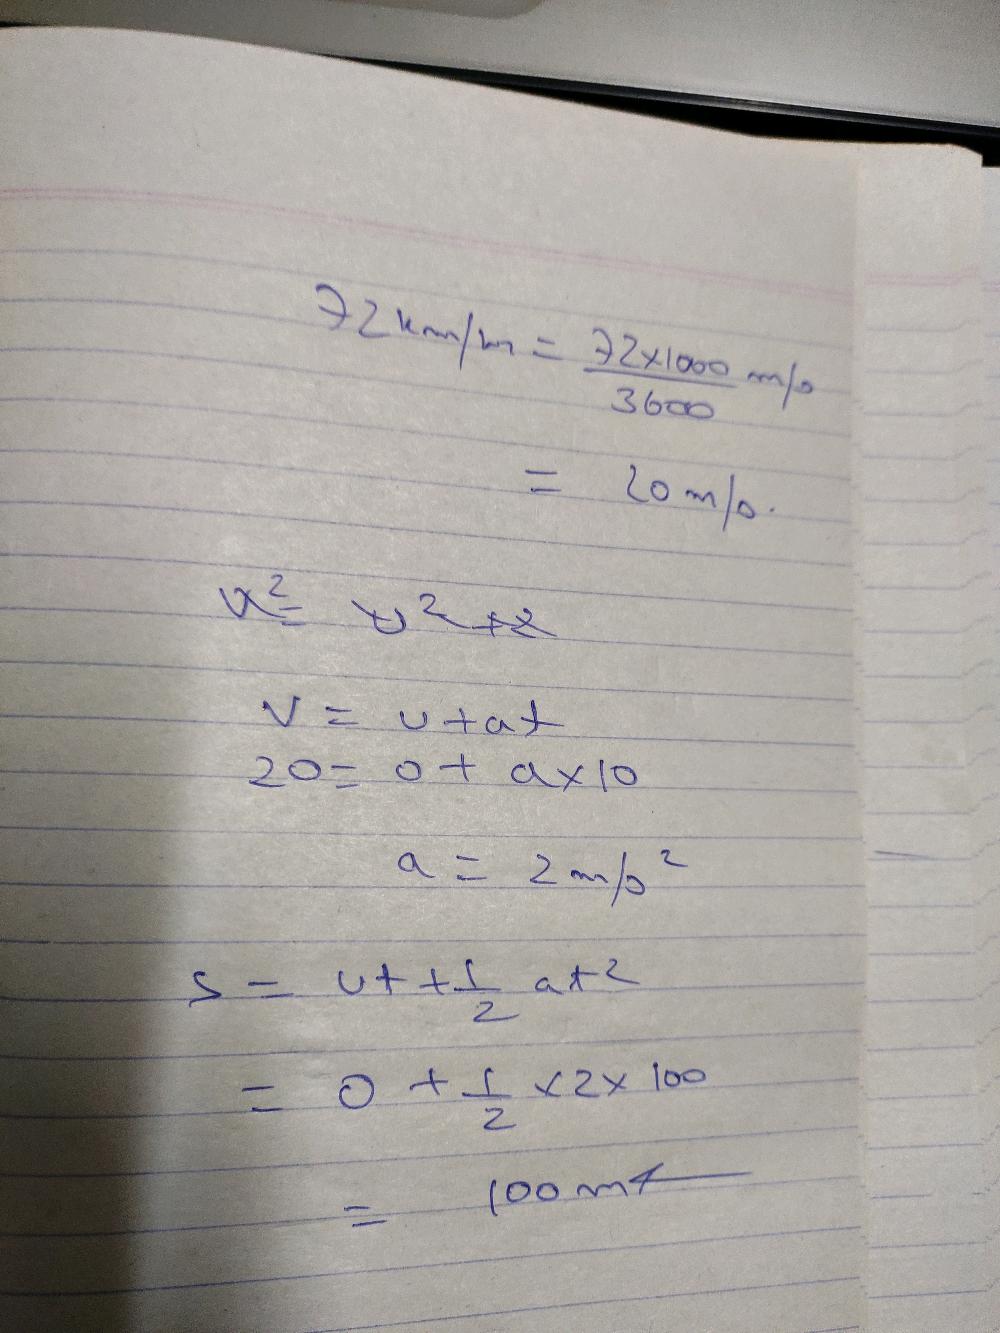 72km/h = 72×1000 m/s
3600
= 20 m/s.
v² = u² + 2
v = u + at
20 = 0 + a×10
a = 2 m/s²
s = ut + 1/2 at²
= 0 + 1/2 × 2 × 100
= 100 mt